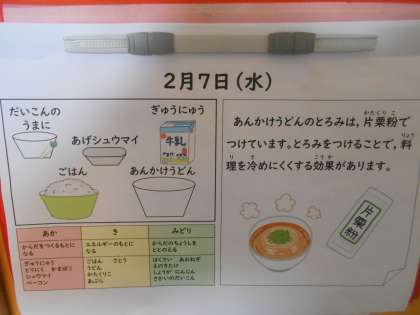 2月7日(水)
だいこんの
うまに
ぎゅうにゅう
あげシュウマイ
牛乳
ごはん
あんかけうどん
あか
き
みどり
からだをつくるもとに
なる
エネルギーのもとに
なる
からだのちょうしを
ととのえる
ぎゅうにゅう
とりにく かまぼこ
シュウマイ
ベーコン
ごはん さとう
うどん
かたくりこ
あぶら
はくさい あおねぎ
えのきたけ
しょうが にんじん
さかいのだいこん
かたくりこ
あんかけうどんのとろみは、片栗粉で
りょう
つけています。とろみをつけることで、料
り さ こうか
理を冷めにくくする効果があります。
片栗粉